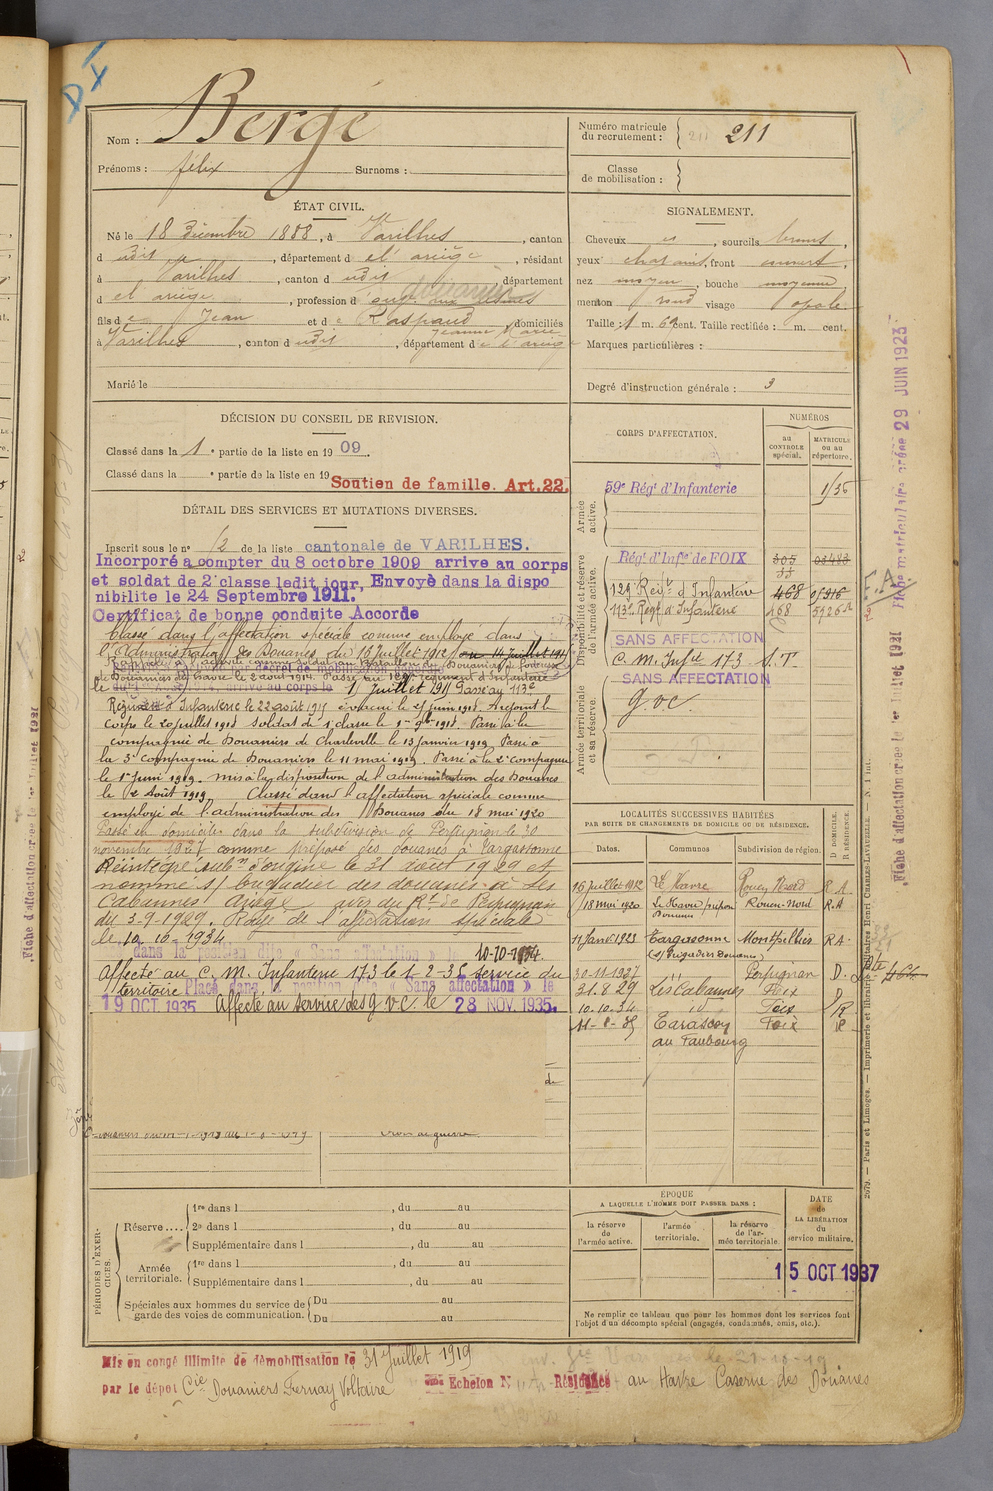 D I
Nom : Bergé
Prénoms : félix Surnoms :
Numéro matricule du recrutement : 211 211
Classe de mobilisation :
ÉTAT CIVIL.
Né le 18 Décembre 1888, à Varilhes, canton
d udit, département d el'ariège, résidant
à Varilhes, canton d udit département
d el ariège, profession d douanier
fils d e Jean et d e Raspaud Jeanne Marie, domiciliés
à Varilhes, canton d udit, département d e l'ariège
Marié le
SIGNALEMENT.
Cheveux es, sourcils bruns,
yeux chatains, front ouvert,
nez moyen, bouche moyenne,
menton rond visage ovale.
Taille : 1 m. 69 cent. Taille rectifiée : m. cent.
Marques particulières :
Degré d'instruction générale : 3
DÉCISION DU CONSEIL DE REVISION.
Classé dans la 1e partie de la liste en 19 09.
Classé dans la e partie de la liste en 19
Soutien de famille. Art. 22.
DÉTAIL DES SERVICES ET MUTATIONS DIVERSES.
Inscrit sous le n° 12 de la liste cantonale de VARILHES.
Incorporé à compter du 8 octobre 1909 arrivé au corps
et soldat de 2e classe ledit jour, Envoyé dans la dispo
nibilité le 24 Septembre 1911.
Certificat de bonne conduite Accordé
Classé dans l'affectation spéciale comme employé dans
l'Administration des Douanes du 16 juillet 1912
Rappelé à l'activité comme soldat au Bataillon de Douaniers de forteresse
de Douaniers du havre le 2 août 1914. Passé au 129e régiment d'Infanterie
le 1 juillet 1915 Passé au 113e
Régiment d'Infanterie le 22 août 1915 évacué le 25 juin 1918. Rejoint le
Corps le 20 juillet 1918 soldat de 1e classe le 1er 9bre 1918. Passé à la
compagnie de Douaniers de Charleville le 13 janvier 1919 Passé à
la 3e compagnie de Douaniers le 11 mai 1919. Passé à la 2e compagnie
le 1er Juin 1919. mis à la disposition de l'administration des Douanes
le 2 Août 1919. Classé dans l'affectation spéciale comme
employé de l'administration des Douanes du 18 mai 1920
Passé en domicile dans la subdivision de Perpignan le 30
novembre 1927 comme préposé des douanes à Targassonne
Réintégré subon d'origine le 31 août 1929 et
nommé s/ brigadier des douanes à Les
Cabannes Ariège avis du Rt de Perpignan
du 3-9-1929. Rayé de l'affectation spéciale
le 10-10-1934
dans la position dite « Sans affectation » 10-10-1934.
Affecté au C. M. Infanterie 173 le 1-2-35 service du
territoire Placé dans la position dite « Sans affectation » le
19 OCT. 1935 Affecté au service des g.v.c. le 28 NOV. 1935.
de
Douaniers du 1919 au 1919 Croix de guerre
CORPS D'AFFECTATION.
NUMÉROS
au CONTRÔLE spécial.
MATRICULE ou au répertoire.
Armée active.
59e Régt d'Infanterie 1/35
Disponibilité et réserve de l'armée active.
Régt d'Infie de FOIX
129e Regt d'Infanterie 468
113e Regt d'Infanterie 468
SANS AFFECTATION
C. M. Infrie 173 S.T.
SANS AFFECTATION
Armée territoriale et sa réserve.
g.v.c.
LOCALITÉS SUCCESSIVES HABITÉES
PAR SUITE DE CHANGEMENTS DE DOMICILE OU DE RÉSIDENCE.
Dates. Communes Subdivision de région. D DOMICILE. R RÉSIDENCE.
16 juillet 1912 Le Havre Rouen Nord R.A.
18 mai 1920 Le Havre préposé Douanes Rouen-Nord R.A
11 Janv 1923 Targasonne (s/ brigadier Douanes) Montpellier R A.
30-11-1927 Perpignan D.
31.8.29 Les Cabannes Foix D
10.10.34 id Foix R
11-8-35 Tarascon Foix
au Faubourg
PÉRIODES D'EXERCICES.
Réserve....
1re dans l, du au
2e dans l, du au
Supplémentaire dans l, du au
Armée territoriale.
1re dans l, du au
Supplémentaire dans l, du au
Spéciales aux hommes du service de garde des voies de communication.
Du au
Du au
ÉPOQUE
A LAQUELLE L'HOMME DOIT PASSER DANS :
la réserve de l'armée active.
l'armée territoriale.
la réserve de l'armée territoriale.
DATE de LA LIBÉRATION du service militaire.
15 OCT 1937
Ne remplir ce tableau que pour les hommes dont les services font l'objet d'un décompte spécial (engagés, condamnés, omis, etc.).
Mis en congé illimité de démobilisation le 31 Juillet 1919
par le dépôt Cie Douaniers Fernay Voltaire Echelon N Résidence au Havre Caserne des Douanes
Fiche matriculaire créée 29 JUIN 1923
F.A.
Fiche d'affectation créée le 1er Juillet 1921
2079. — Paris et Limoges. — Imprimerie et librairie militaires Henri CHARLES-LAVAUZELLE. — N. 1 int.
Fiche d'affectation créée le 1er Juillet 1921